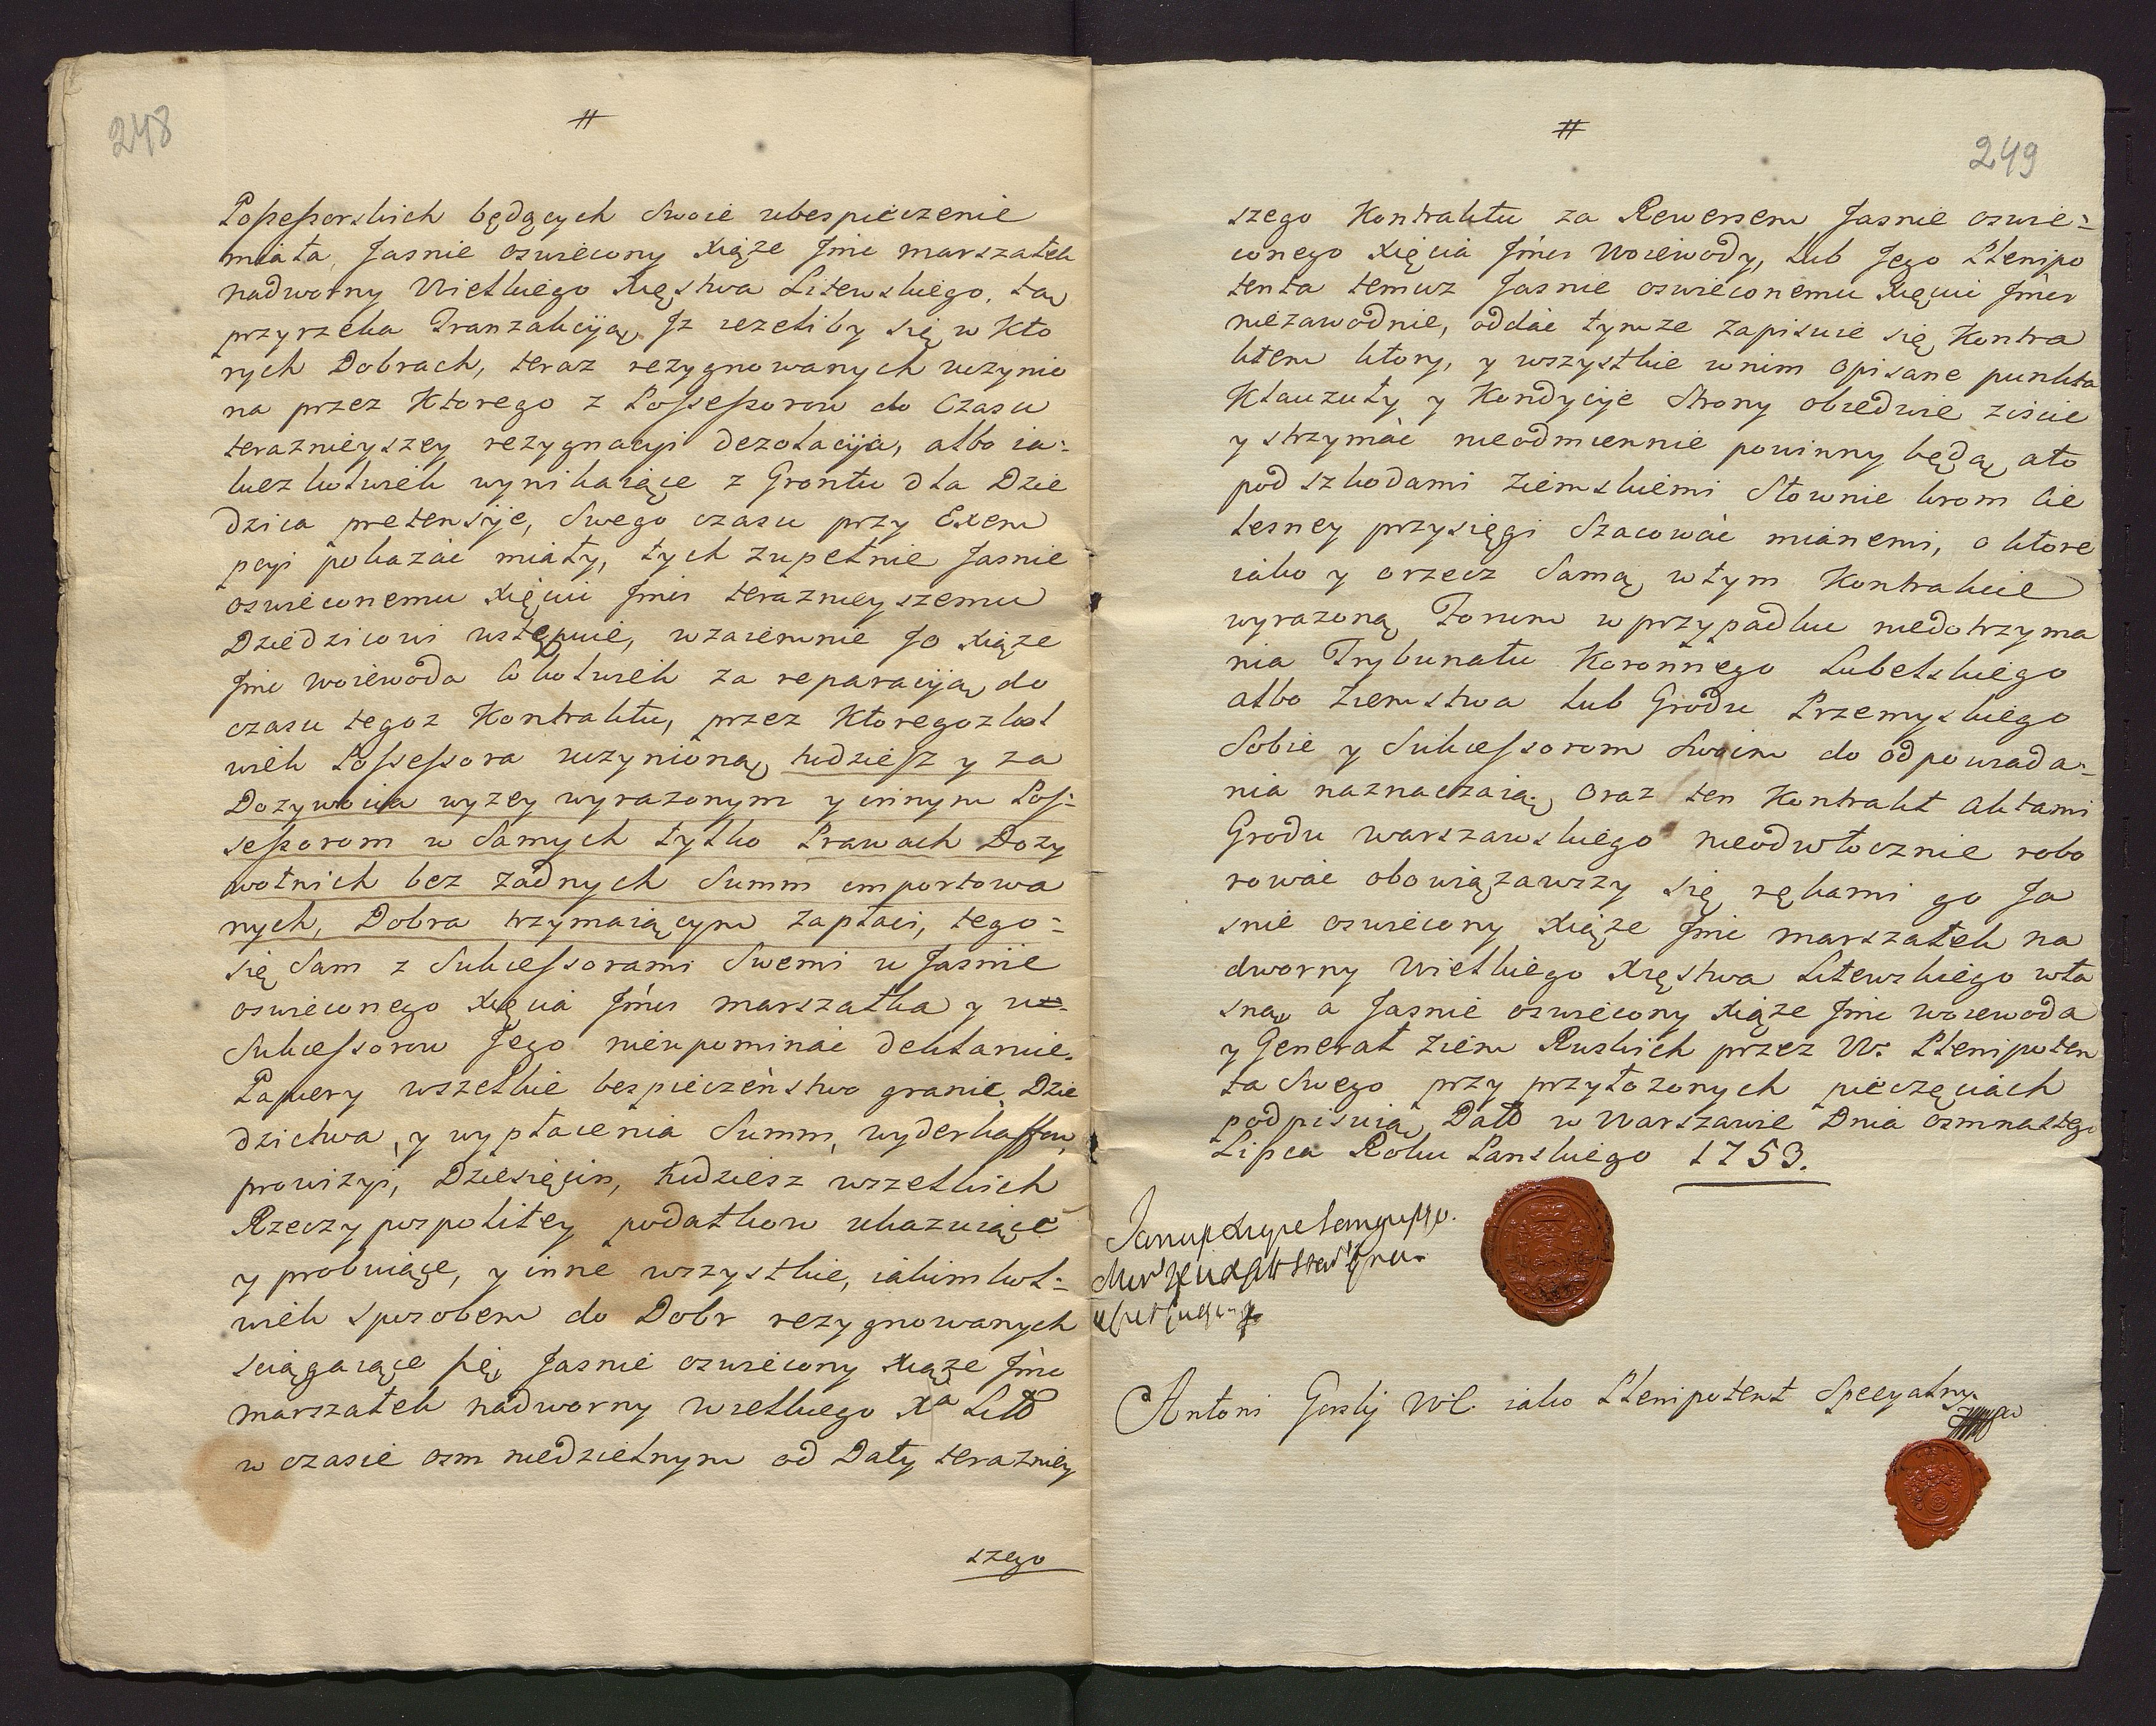 248
#
Possessorskich będących Swoie ubespieczenie
miała, Jasnie oswiecony Xiąże Jmć marszałek
nadworny Wielkiego Xięstwa Litewskiego, tą
przyrzeka Tranzakcyą, Jz ieżeliby się w Kto
rych Dobrach, teraz rezygnowanych uczynio
na przez Ktorego z Possessorow do Czasu
teraznieyszey rezygnacyi dezolacyia, albo ia-
kiez kolwiek wynikaiące z Grontu dla Dzie
dzica pretensyie, Swego czasu przy Exem
pcyi pokazać miały, tych zupełnie Jasnie
oswieconemu Xięciu Jmci teraznieyszemu
Dziedzicowi ustępuie, wzaiemnie JO Xiąże
Jmć Woiewoda Cokolwiek za reparacyią, do
czasu tegoz Kontraktu, przez Ktoregozkol
wiek Possessora uczynioną, tudziesz y za
Dozywocia wyzey wyrazonym y innym Pos-
sessorom w Samych tylko Prawach Dozy
wotnich bez żadnych Summ importowa
nych, Dobra trzymaiącym zapłaci, tego-
się Sam z Sukcessorami Swemi u Jasnie
oswieconego Xięcia Jmci marszałka y u
Sukcessorow Jego nieupominać deklaruie.
Papiery wszelkie bespieczeństwo granic, Dzie
dzictwa, y wypłacenia Summ, wyderkaffow,
prowizyi, Dziesięcin, tudziesz wszelkich
Rzeczy pospolitey podatkow ukazuiące
y probuiące, y inne wszystkie, iakimkol-
wiek sposobem do Dobr rezygnowanych
sciągaiące się, Jasnie oswiecony Xiąże Jmć
marszałek nadworny wielkiego Xa Litt
w czasie osm niedzielnym od Daty teraźniey
szego
#
249
szego Kontraktu za Rewersem Jasnie oswie-
conego Xięcia Jmci Woiewody, lub Jego Plenipo
tenta temuz Jasnie oswieconemu Xięciu Jmci
niezawodnie, oddać tymze zapisuie się Kontra
ktem ktory, y wszystkie wnim opisane punkta
Klauzuły y Kondycyie Strony obiedwie ziscic
y strzymać nieodmiennie powinny będą, ato
pod szkodami ziemskiemi Słownie krom Cie
lesney przysięgi Szacować mianemi, o ktore
iako y orzecz Samą, wtym Kontrakcie
wyrazoną Forum w przypadku niedotrzyma
nia Trybunału Koronnego Lubelskiego
albo Ziemstwa lub Grodu Przemyskiego
Sobie y Sukcessorom Swoim do odpowiada-
nia naznaczaią, Oraz ten Kontrakt Aktami
Grodu warszawskiego nieodwłocznie robo
rować obowiązawszy się rękami go Ja
snie oswiecony Xiąże Jmć marszałek na
dworny Wielkiego Xięstwa Litewskiego wła
sną, a Jasnie oswiecony Xiąże Jmć woiewoda
y Generał Ziem Ruskich przez W. Plenipoten
ta Swego przy przyłozonych pieczęciach
podpisuią Datt w Warszawie Dnia osmnastego
Lipca Roku Panskiego 1753.
Antoni Gorski iako Plenipotent Specyalny